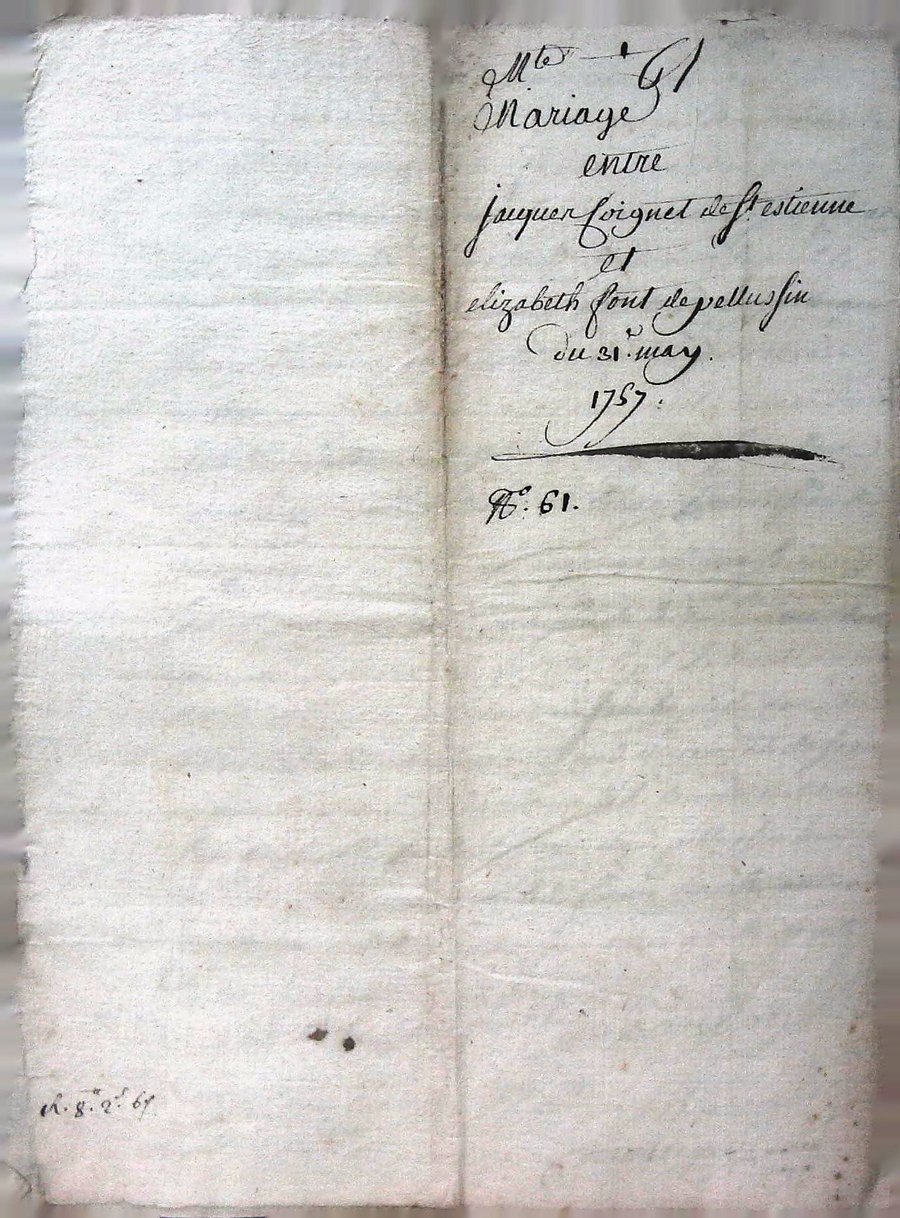 Mte 61
Mariage
entre
jacques Coignet de St estienne
et
elizabeth font de pellussin
Du 31e may.
1757.
No. 61.